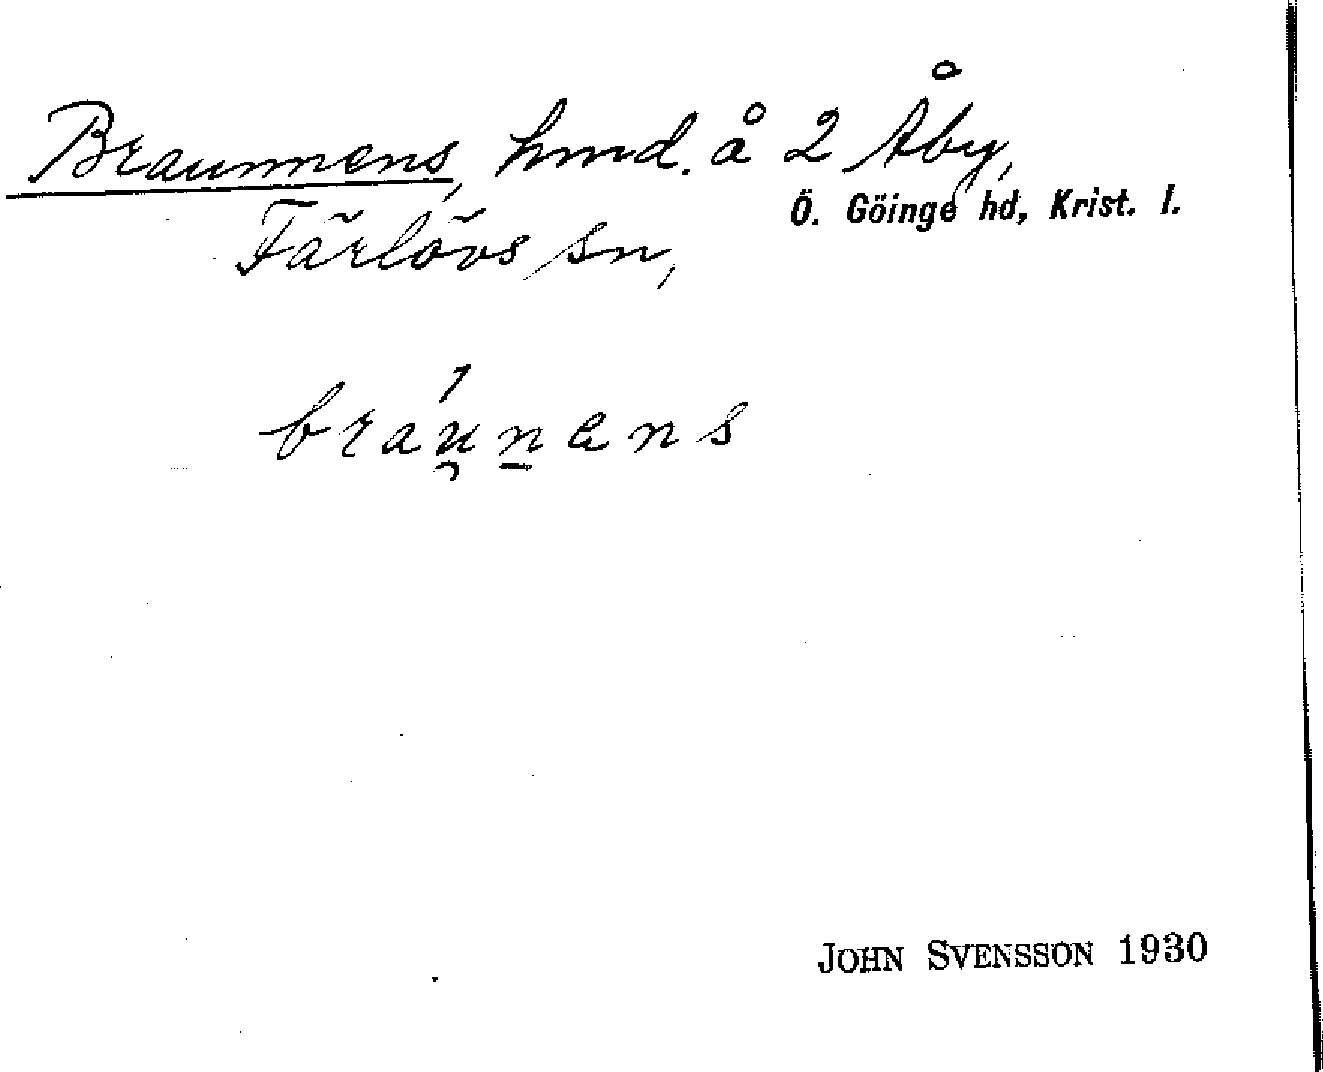 Braunnens, hmd. å 2 Åby,
Ö. Göinge hd, Krist. l.
Färlövs sn,
bráu̯n̲ens
JOHN SVENSSON 1930